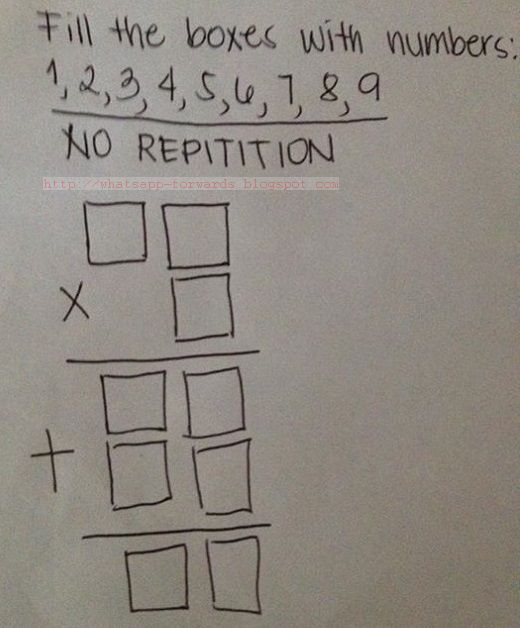 Fill the boxes with numbers:
1, 2, 3, 4, 5, 6, 7, 8, 9
NO REPITITION
http://whatsapp-forwards.blogspot.com
×
+